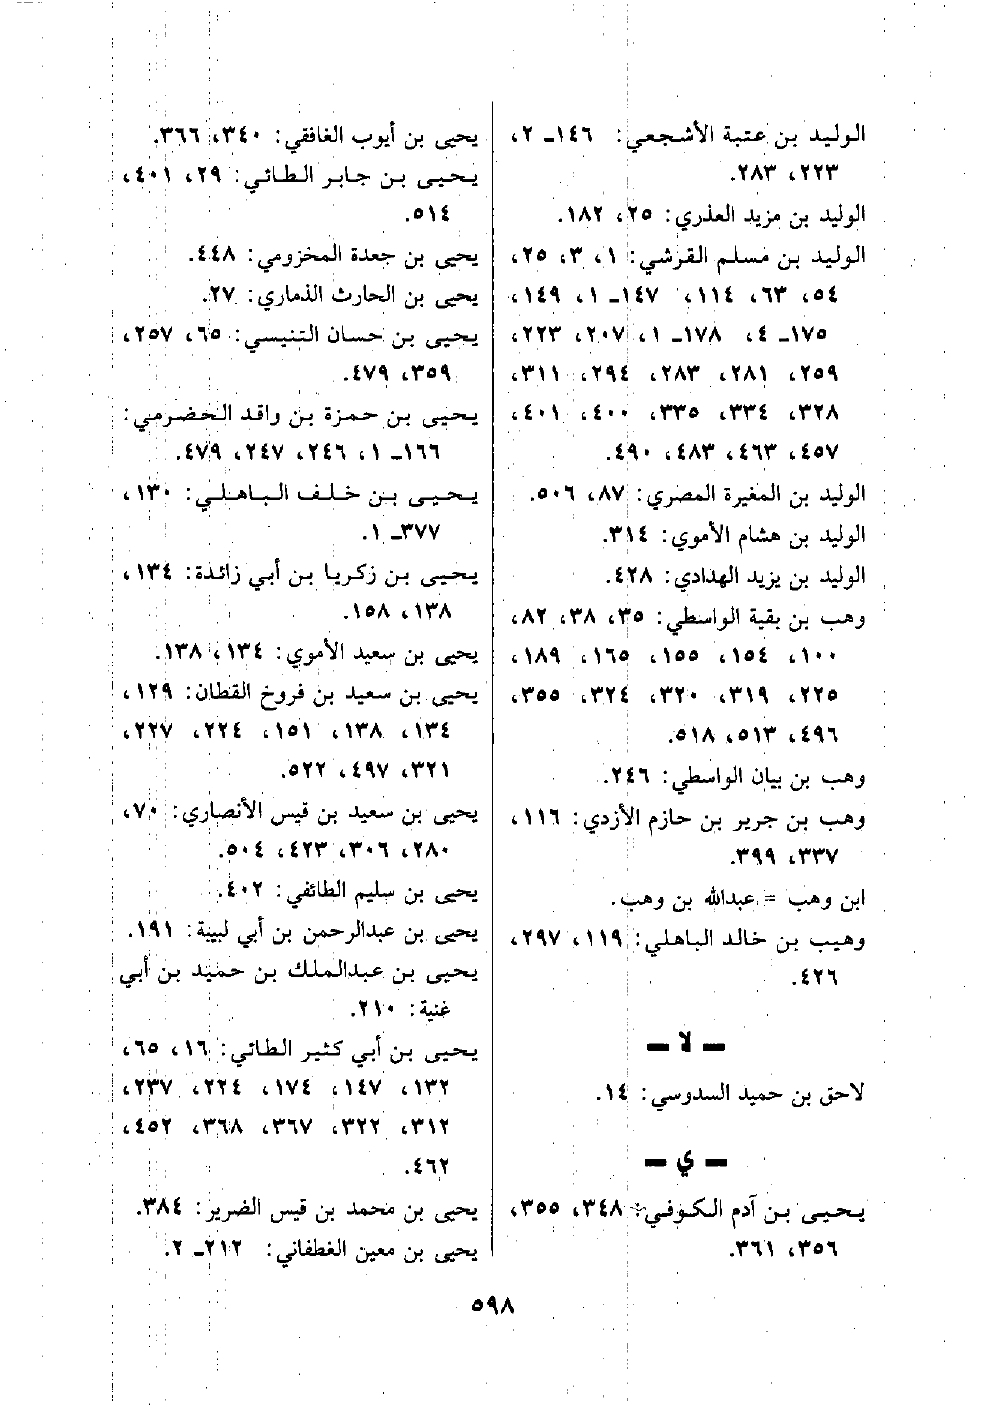 الوليد بن عتبة الأشجعي: ١٤٦ـ ٢،
٢٢٣، ٢٨٣.
الوليد بن مزيد العذري: ٢٥، ١٨٢.
الوليد بن مسلم القرشي: ١، ٣، ٢٥،
٥٤، ٦٣، ١١٤، ١٤٧ـ ١، ١٤٩،
١٧٥ـ ٤، ١٧٨ـ ١، ٢٠٧، ٢٢٣،
٢٥٩، ٢٨١، ٢٨٣، ٢٩٤، ٣١١،
٣٢٨، ٣٣٤، ٣٣٥، ٤٠٠، ٤٠١،
٤٥٧، ٤٦٣، ٤٨٣، ٤٩٠.
الوليد بن المغيرة المصري: ٨٧، ٥٠٦.
الوليد بن هشام الأموي: ٣١٤.
الوليد بن يزيد الهدادي: ٤٢٨.
وهب بن بقية الواسطي: ٣٥، ٣٨، ٨٢،
١٠٠، ١٥٤، ١٥٥، ١٦٥، ١٨٩،
٢٢٥، ٣١٩، ٣٢٠، ٣٢٤، ٣٥٥،
٤٩٦، ٥١٣، ٥١٨.
وهب بن بيان الواسطي: ٢٤٦.
وهب بن جرير بن حازم الأزدي: ١١٦،
٣٣٧، ٣٩٩.
ابن وهب = عبدالله بن وهب.
وهيب بن خالد الباهلي: ١١٩، ٢٩٧،
٤٢٦.
ـ لا ـ
لاحق بن حميد السدوسي: ١٤.
ـ ي ـ
يحيى بن آدم الكوفي: ٣٤٨، ٣٥٥،
٣٥٦، ٣٦١.
يحيى بن أيوب الغافقي: ٣٤٠، ٣٦٦.
يحيى بن جابر الطائي: ٢٩، ٤٠١،
٥١٤.
يحيى بن جعدة المخزومي: ٤٤٨.
يحيى بن الحارث الذماري: ٢٧.
يحيى بن حسان التنيسي: ٦٥، ٢٥٧،
٣٥٩، ٤٧٩.
يحيى بن حمزة بن واقد الحضرمي:
١٦٦ـ ١، ٢٤٦، ٢٤٧، ٤٧٩.
يحيى بن خلف الباهلي: ١٣٠،
٣٧٧ـ ١.
يحيى بن زكريا بن أبي زائدة: ١٣٤،
١٣٨، ١٥٨.
يحيى بن سعيد الأموي: ١٣٤، ١٣٨.
يحيى بن سعيد بن فروخ القطان: ١٢٩،
١٣٤، ١٣٨، ١٥١، ٢٢٤، ٢٢٧،
٣٢١، ٤٩٧، ٥٢٢.
يحيى بن سعيد بن قيس الأنصاري: ٧٠،
٢٨٠، ٣٠٦، ٤٢٣، ٥٠٤.
يحيى بن سليم الطائفي: ٤٠٢.
يحيى بن عبدالرحمن بن أبي لبيبة: ١٩١.
يحيى بن عبدالملك بن حميد بن أبي
غنية: ٢١٠.
يحيى بن أبي كثير الطائي: ١٦، ٦٥،
١٣٢، ١٤٧، ١٧٤، ٢٢٤، ٢٣٧،
٣١٢، ٣٢٢، ٣٦٧، ٣٦٨، ٤٥٢،
٤٦٢.
يحيى بن محمد بن قيس الضرير: ٣٨٤.
يحيى بن معين الغطفاني: ٢١٢ـ ٢.
٥٩٨